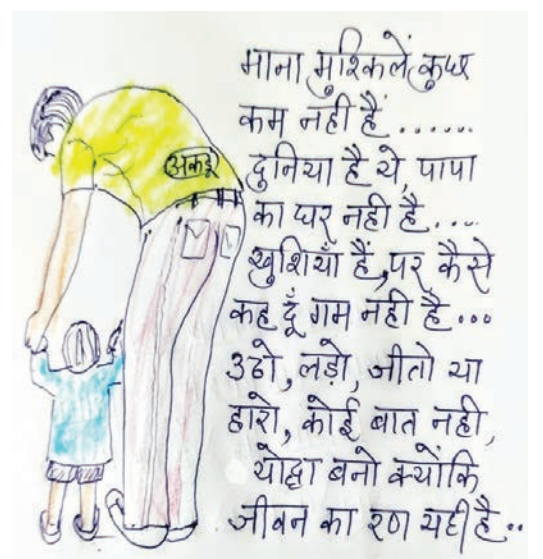 माना मुश्किलें कुछ
कम नही हैं ......
अकडू
दुनिया है ये, पापा
का घर नही है ....
खुशियाँ हैं, पर कैसे
कह दूँ गम नही है ...
उठो, लड़ो, जीतो या
हारो, कोई बात नही,
योद्धा बनो क्योंकि
जीवन का रण यही है ..